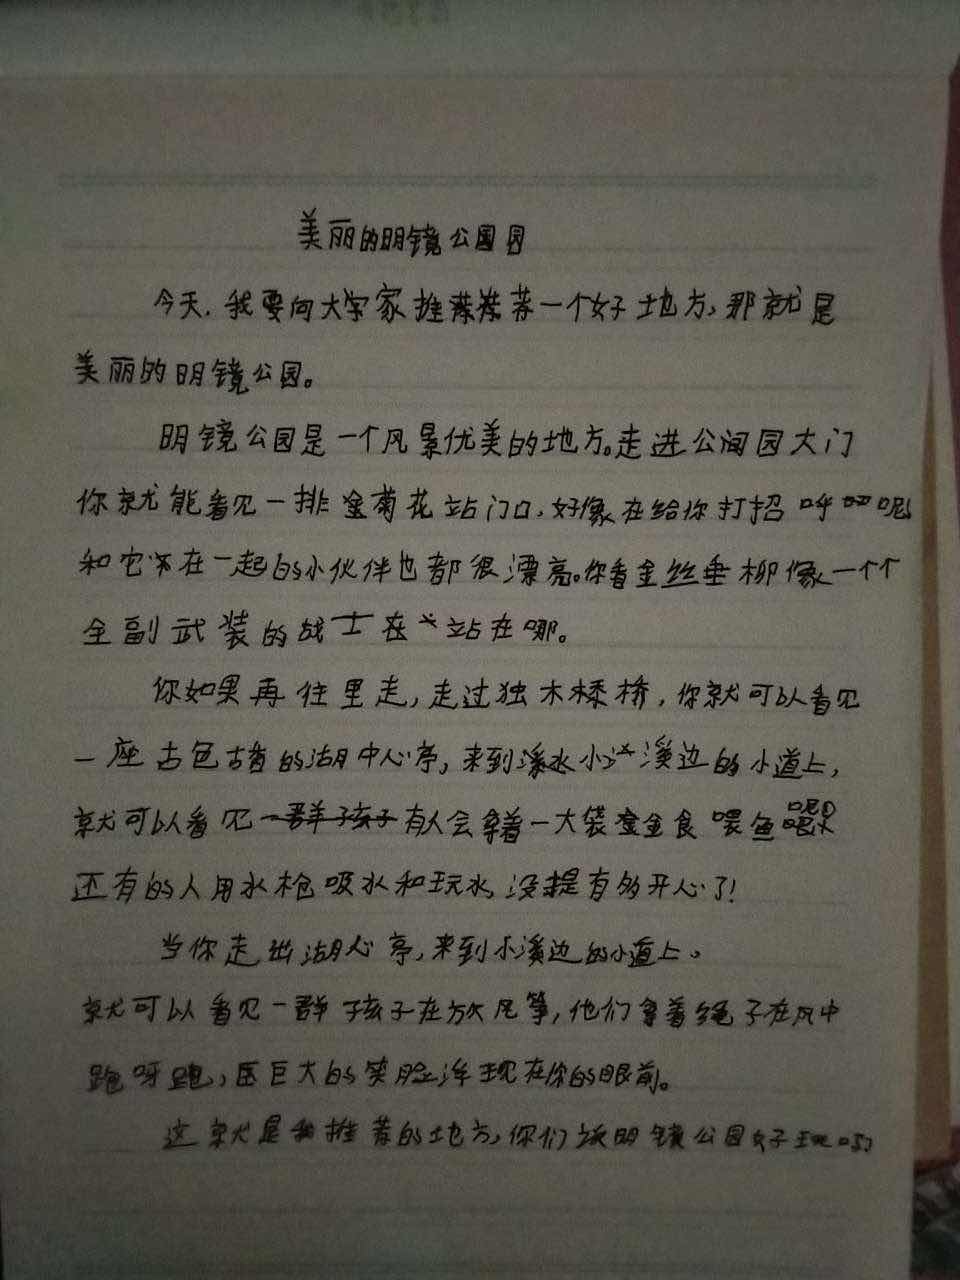 美丽的明镜公园园
今天，我要向大家推荐荐一个好地方，那就是
美丽的明镜公园。
明镜公园是一个风景优美的地方。走进公园大门
你就能看见一排金菊花站门口，好像在给你打招呼呢
和它在一起的小伙伴也都很漂亮。你看金丝垂柳像一个个
全副武装的战士在站在哪。
你如果再往里走，走过独木桥，你就可以看见
一座古色古香的湖中心亭，来到溪水小溪边的小道上，
就可以看见一群孩子有人会拿着一大袋金食喂鱼
还有的人用水枪吸水和玩水，没提有多开心了！
当你走出湖心亭，来到小溪边的小道上。
就可以看见一群孩子在放风筝，他们拿着绳子在风中
跑呀跑，巨大的笑脸浮现在你的眼前。
这就是我推荐的地方，你们该明镜公园好玩吗